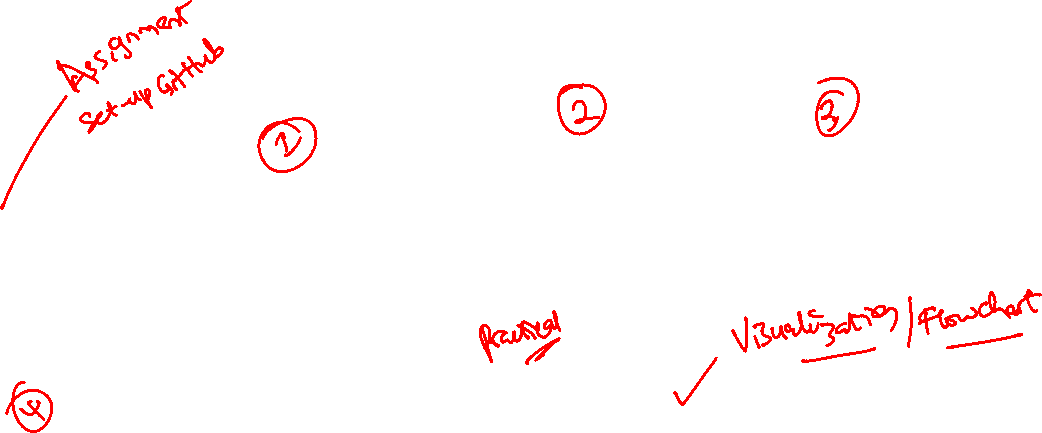 Assignment
Set-up GitHub
1
2
3
Practical
Visualization / Flowchart
4